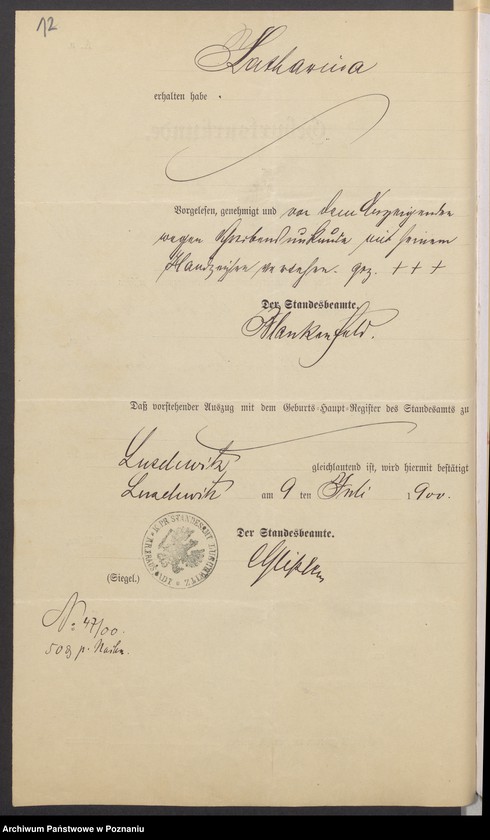 12
Katharina
erhalten habe
Vorgelesen, genehmigt und von dem Anzeigenden
wegen Schreibensunkunde mit seinem
Handzeichen versehen. gez. + + +
Der Standesbeamte.
Blankenfeld.
Daß vorstehender Auszug mit dem Geburts-Haupt-Register des Standesamts zu
Luschwitz
gleichlautend ist, wird hiermit bestätigt
Luschwitz am 9 ten Juli 1900.
Der Standesbeamte.
(Siegel.)
No 47/00.
50 p.
Archiwum Państwowe w Poznaniu